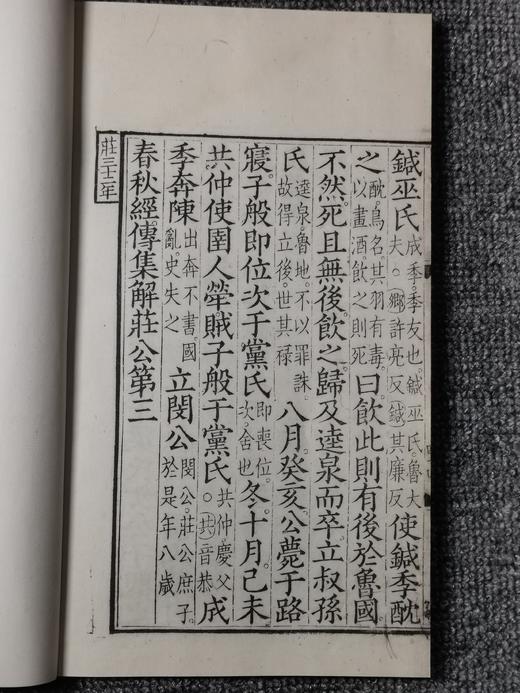 鍼巫氏成季季友也鍼巫氏魯大夫○鄉許亮反鍼其廉反使鍼季酖
之酖鳥名其羽有毒以畫酒飲之則死曰飲此則有後於魯國
不然死且無後飲之歸及逵泉而卒立叔孫
氏逵泉魯地不以罪誅故得立後世其祿八月癸亥公薨于路
寢子般即位次于黨氏即喪位次舍也冬十月己未
共仲使圉人犖賊子般于黨氏共仲慶父○共音恭成
季奔陳出奔不書國亂史失之立閔公閔公莊公庶子於是年八歲
春秋經傳集解莊公第三
莊三十二年